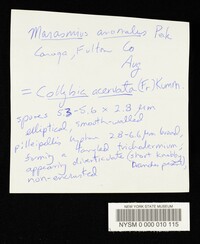 Marasmius anomalus Pk
Caroga, Fulton Co
Aug
= Collybia acervata (Fr.) Kumm.
spores 5.3-5.6 x 2.8 µm
elliptical, smooth-walled
pile-pellis hyphae 2.8-6.6 µm broad,
forming a tangled trichodermium;
appearing diverticulate (short knobby
branches present),
non-encrusted
NEW YORK STATE MUSEUM
NYSM 0 000 010 115